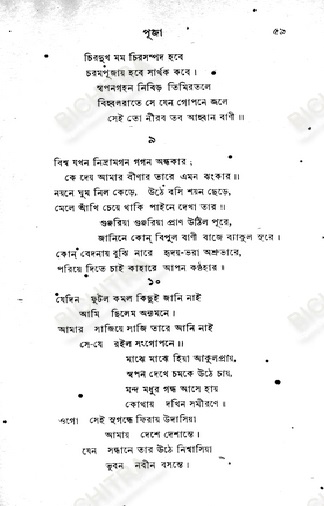 পূজা ৫৯
চিরদুখ মম চিরসম্পদ হবে
চরমপূজায় হবে সার্থক কবে।
স্বপনগহন নিবিড় তিমিরতলে
বিহ্বলরাতে সে যেন গোপনে জলে
সেই তো নীরব তব আহ্বান বাণী॥
৯
বিশ্ব যখন নিদ্রামগন গগন অন্ধকার;
কে দেয় আমার বীণার তারে এমন ঝংকার॥
নয়নে ঘুম নিল কেড়ে, উঠে বসি শয়ন ছেড়ে,
মেলে আঁখি চেয়ে থাকি পাইনে দেখা তার॥
গুঞ্জরিয়া গুঞ্জরিয়া প্রাণ উঠিল পূরে,
জানিনে কোন্ বিপুল বাণী বাজে ব্যাকুল সুরে।
কোন্ বেদনায় বুঝি নারে হৃদয়-ভরা অশ্রুভারে,
পরিয়ে দিতে চাই কাহারে আপন কণ্ঠহার॥
১০
যেদিন ফুটল কমল কিছুই জানি নাই
আমি ছিলেম অন্যমনে।
আমার সাজিয়ে সাজি তারে আনি নাই
সে-যে রইল সংগোপনে॥
মাঝে মাঝে হিয়া আকুলপ্রায়,
স্বপন দেখে চমকে উঠে চায়,
মন্দ মধুর গন্ধ আসে হায়
কোথায় দখিন সমীরণে॥
ওগো সেই সুগন্ধে ফিরায় উদাসিয়া
আমায় দেশে দেশান্তে।
যেন সন্ধানে তার উঠে নিশ্বাসিয়া
ভুবন নবীন বসন্তে।